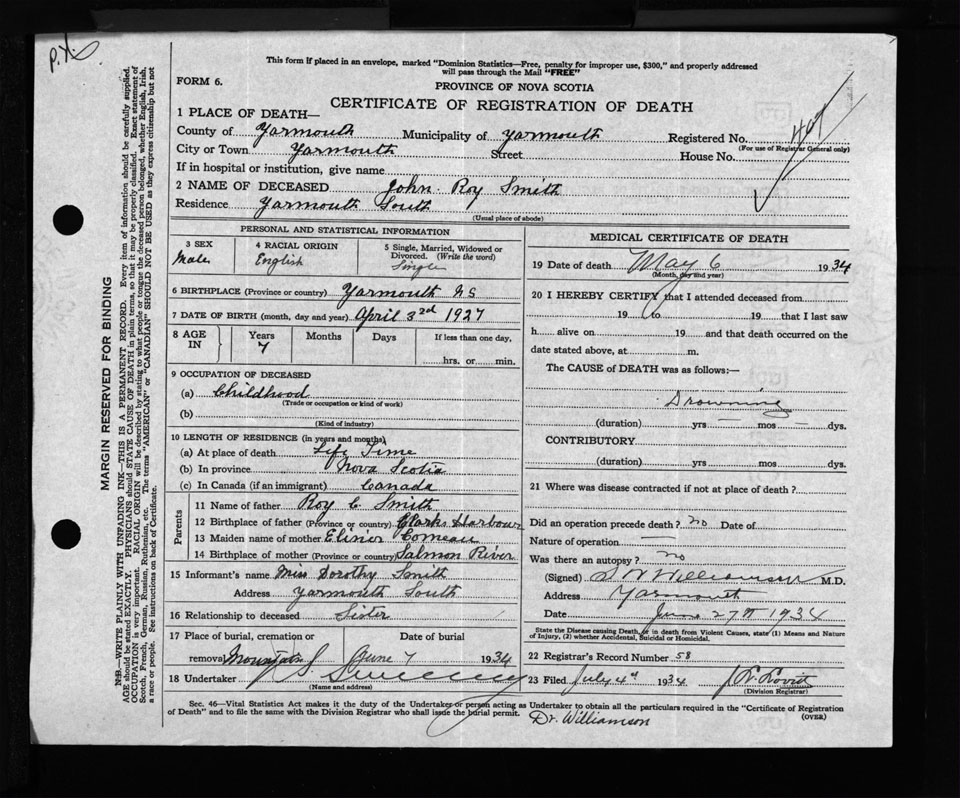 P.X.
This form if placed in an envelope, marked "Dominion Statistics—Free, penalty for improper use, $300," and properly addressed
will pass through the Mail "FREE"
FORM 6.
PROVINCE OF NOVA SCOTIA
CERTIFICATE OF REGISTRATION OF DEATH
1 PLACE OF DEATH—
County of Yarmouth Municipality of Yarmouth Registered No. 467
(For use of Registrar General only)
City or Town Yarmouth Street House No.
If in hospital or institution, give name
2 NAME OF DECEASED John Roy Smith
Residence Yarmouth South
(Usual place of abode)
PERSONAL AND STATISTICAL INFORMATION
3 SEX Male
4 RACIAL ORIGIN English
5 Single, Married, Widowed or Divorced. (Write the word) Single
6 BIRTHPLACE (Province or country) Yarmouth N S
7 DATE OF BIRTH (month, day and year) April 3rd 1927
8 AGE IN Years 7 Months Days If less than one day, hrs. or min.
9 OCCUPATION OF DECEASED
(a) Childhood
(Trade or occupation or kind of work)
(b)
(Kind of industry)
10 LENGTH OF RESIDENCE (in years and months)
(a) At place of death Life Time
(b) In province Nova Scotia
(c) In Canada (if an immigrant) Canada
Parents
11 Name of father Roy C. Smith
12 Birthplace of father (Province or country) Clarks Harbour
13 Maiden name of mother Elinor Comeau
14 Birthplace of mother (Province or country) Salmon River
15 Informant's name Miss Dorothy Smith
Address Yarmouth South
16 Relationship to deceased Sister
17 Place of burial, cremation or removal Mountain Date of burial June 7 1934
18 Undertaker Sweeney
(Name and address)
MEDICAL CERTIFICATE OF DEATH
19 Date of death May 6 1934
(Month, day and year)
20 I HEREBY CERTIFY that I attended deceased from
19 to 19 that I last saw
h alive on 19 and that death occurred on the
date stated above, at m.
The CAUSE of DEATH was as follows:—
Drowning
(duration) yrs — mos — dys.
CONTRIBUTORY
(duration) yrs mos dys.
21 Where was disease contracted if not at place of death?
Did an operation precede death? no Date of
Nature of operation —
Was there an autopsy? no
(Signed) S W Williamson M.D.
Address Yarmouth
Date June 27th 1934
State the Disease causing Death, or in death from Violent Causes, state (1) Means and Nature
of Injury, (2) whether Accidental, Suicidal or Homicidal.
22 Registrar's Record Number 58
23 Filed July 4th 1934 Lovitt
(Division Registrar)
Sec. 46—Vital Statistics Act makes it the duty of the Undertaker or person acting as Undertaker to obtain all the particulars required in the "Certificate of Registration
of Death" and to file the same with the Division Registrar who shall issue the burial permit. Dr. Williamson (OVER)
MARGIN RESERVED FOR BINDING
N.B.—WRITE PLAINLY WITH UNFADING INK—THIS IS A PERMANENT RECORD. Every item of information should be carefully supplied.
AGE should be stated EXACTLY. PHYSICIANS should STATE CAUSE OF DEATH in plain terms, so that it may be properly classified. Exact statement of
OCCUPATION is very important. RACIAL ORIGIN will be described by stating to what people or tongue the deceased person belonged, whether English, Irish,
Scotch, French, German, Russian, Ruthenian, etc. The terms "AMERICAN" or "CANADIAN" SHOULD NOT BE USED as they express citizenship but not
a race or people. See instructions on back of Certificate.